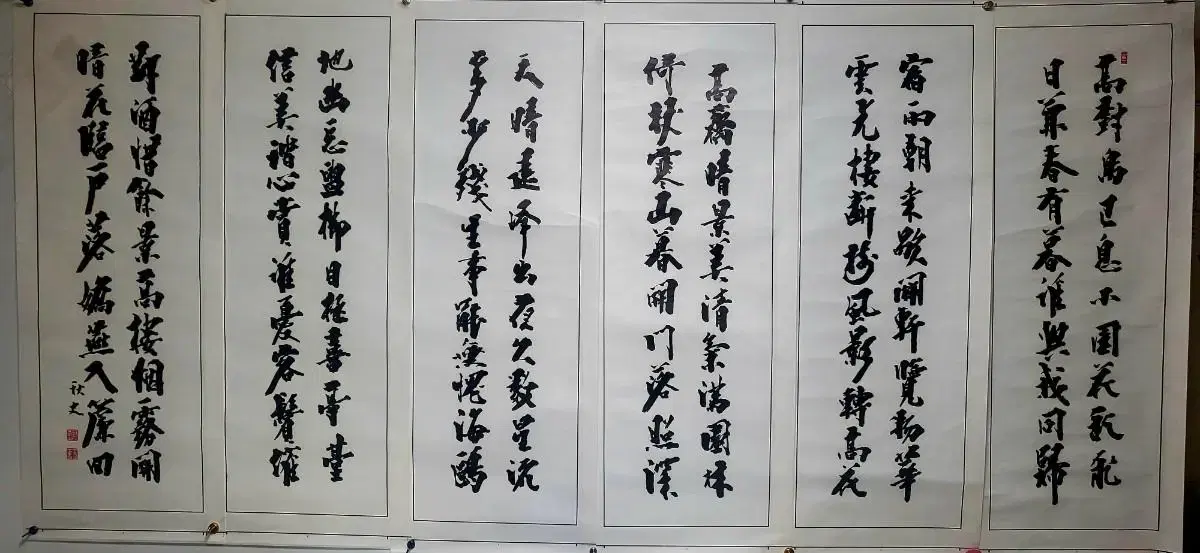 高樹鳥已息小園花亂飛
日兼春有暮誰與我同歸
宿雨朝來歇開軒覽物華
雲光棲斷樹風影轉高花
高齋晴景美清氣滿園林
倚杖寒山暮開門落照深
天晴遠峰出夜久數星流
多少殘生事能無愧海鷗
地幽忘盥櫛目極喜亭臺
信美諧心賞誰憂容鬢催
對酒惜餘景高樓霧開
晴花臨戶落嬌燕入簾回
秋史